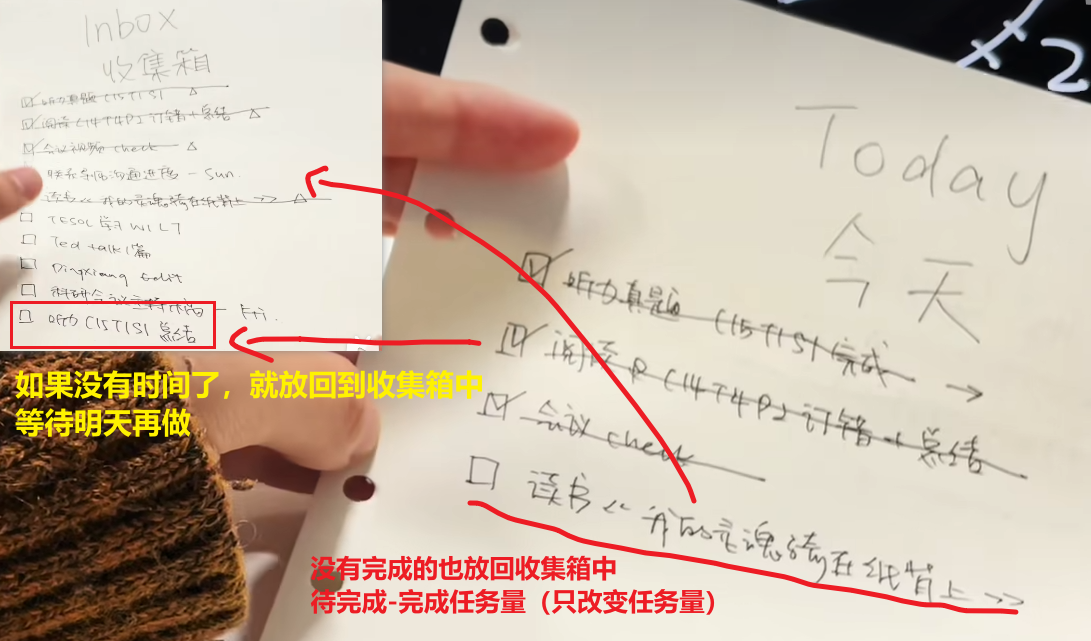 Inbox
收集箱
☑ 听力真题 C15T1S1 △
☑ 阅读 C14T4P2 订错+总结 △
☑ 会议视频 check △
联系东西沟通进度 - Sun.
读书 << 我的灵魂骑在纸背上 >> △
☐ TESOL 学习 WIL7
☐ Ted talk 1篇
☐ Dingxiang Edit
☐ 科研会议 - Fri.
☐ 听力 C15T1S1 总结
如果没有时间了，就放回到收集箱中
等待明天再做
×2
Today
今天
☑ 听力真题 C15T1S1 完成 →
☑ 阅读 C14T4P2 订错+总结
☑ 会议 check
☐ 读书 << 我的灵魂骑在纸背上 >>
没有完成的也放回收集箱中
待完成-完成任务量（只改变任务量）